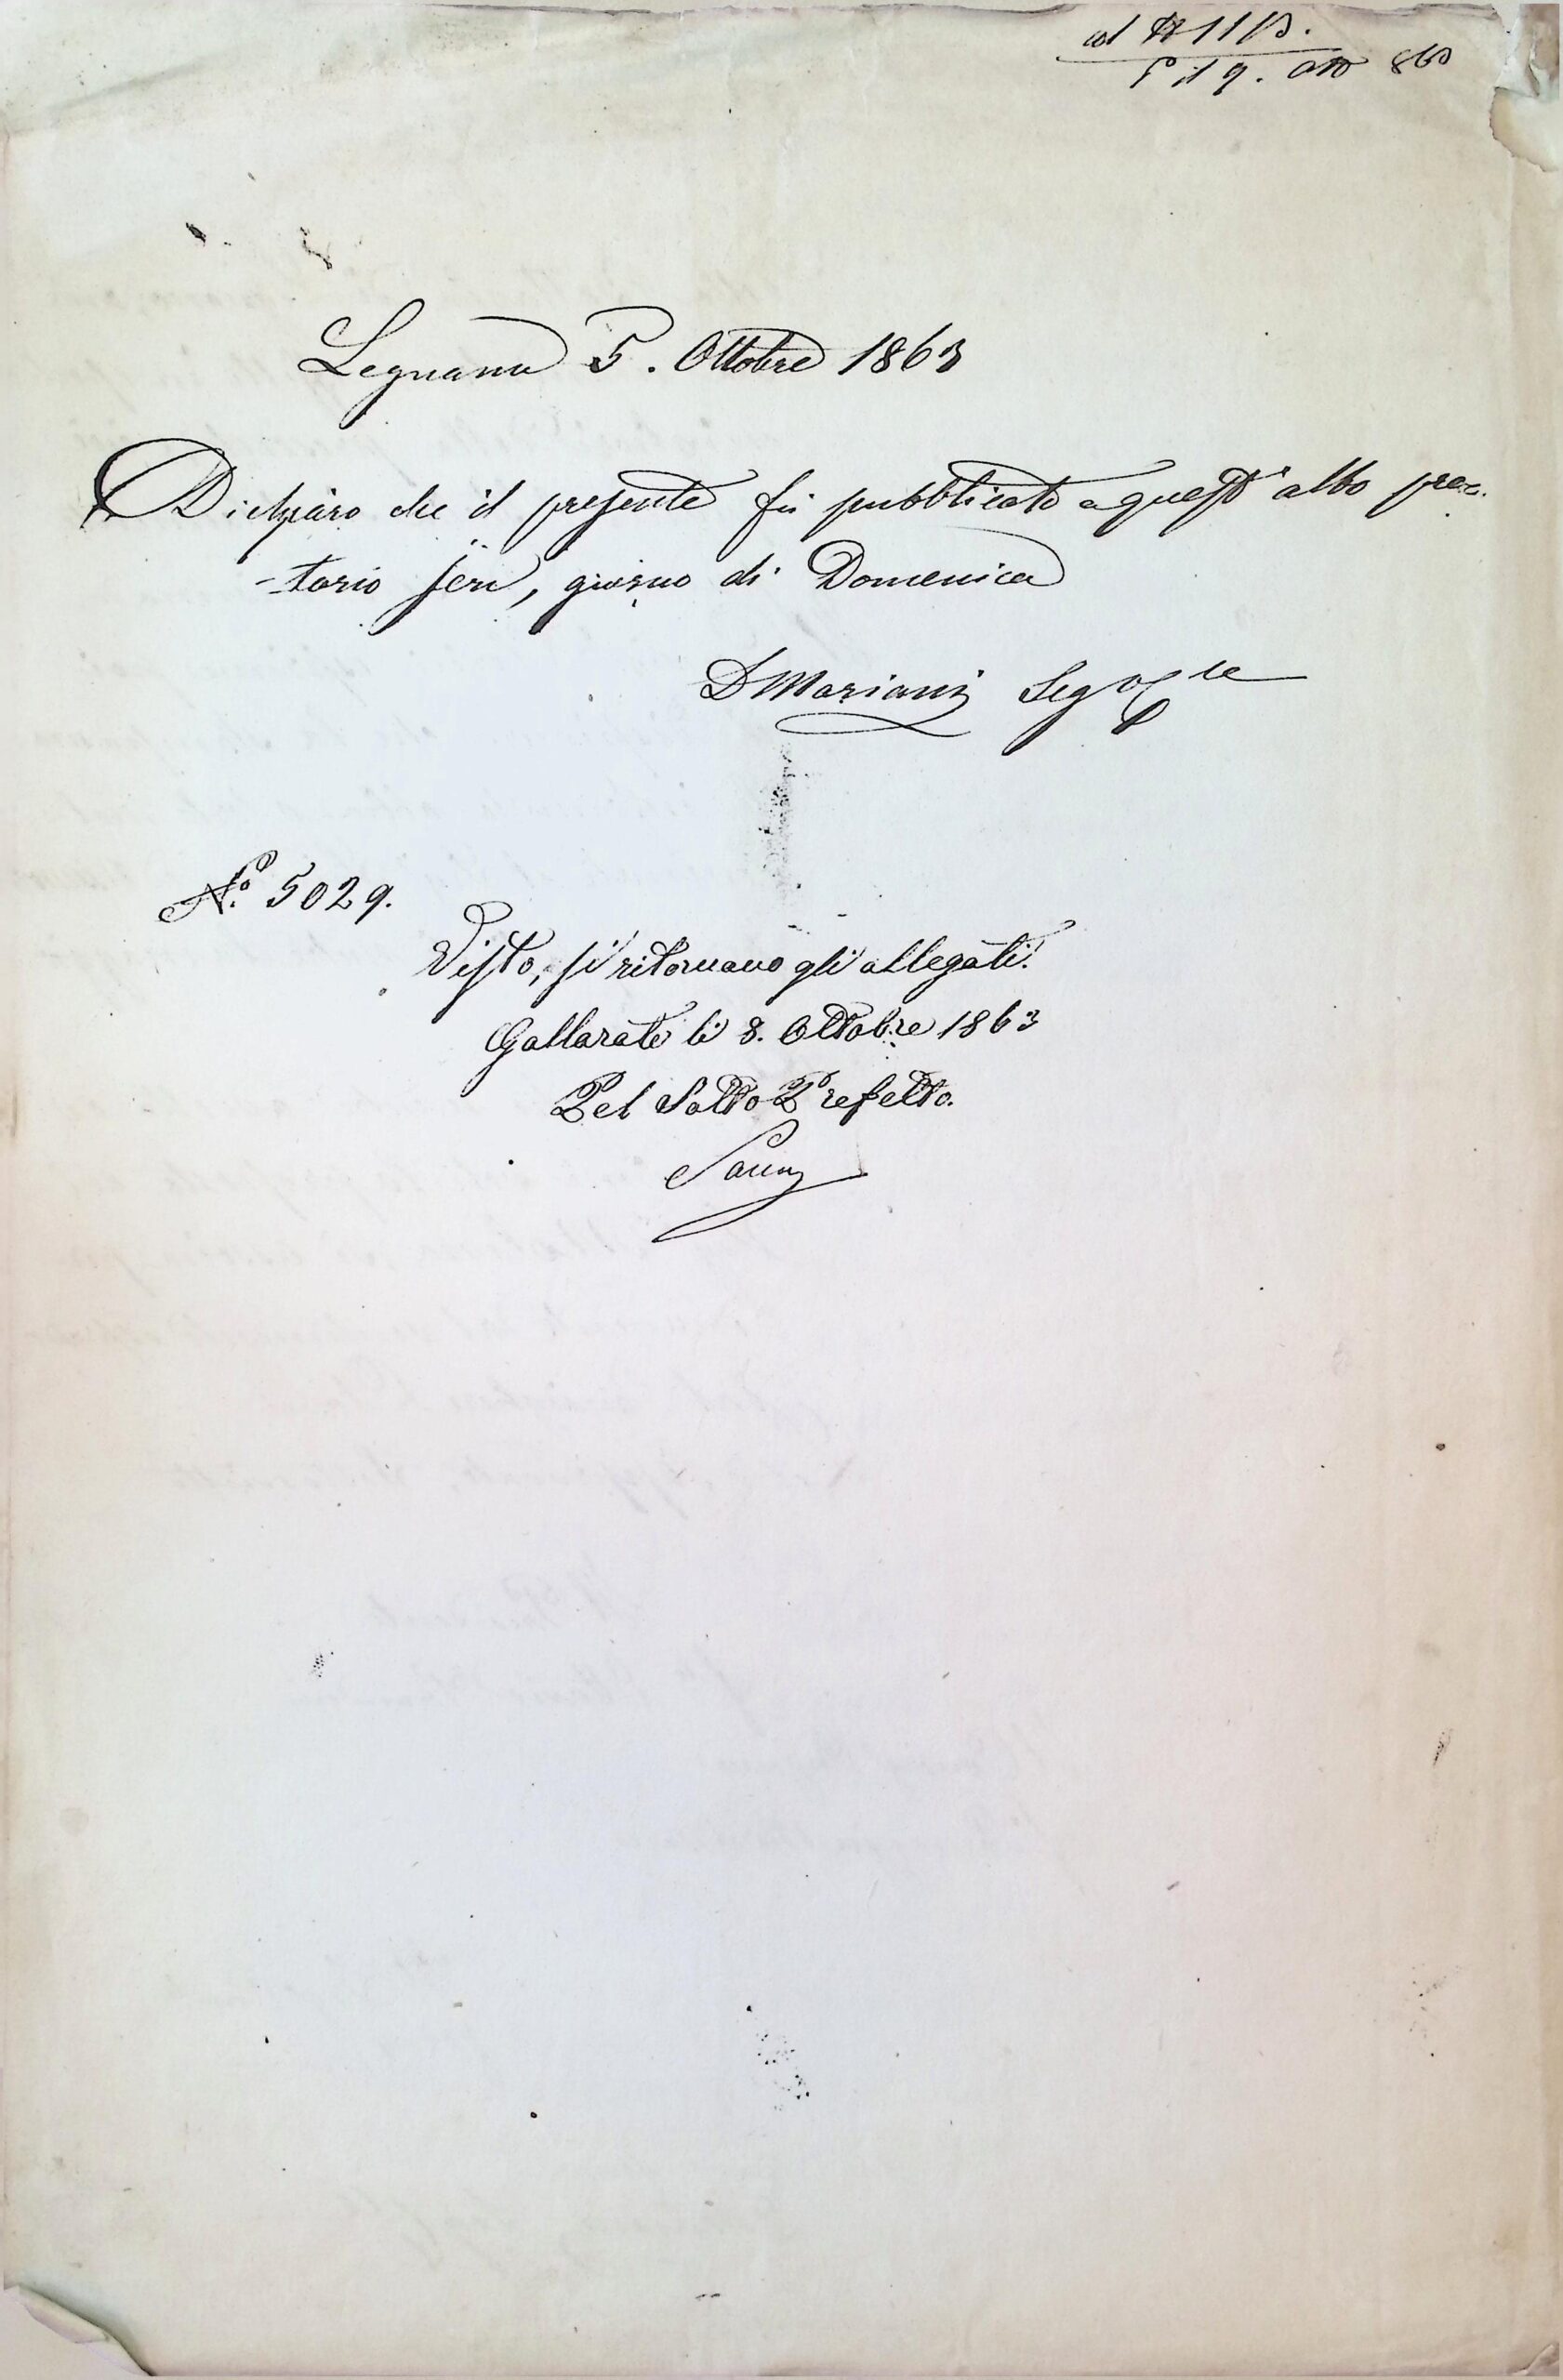 ad N 11
P il 9. Ott 863
Legnano 5. Ottobre 1863
Dichiaro che il presente fu pubblicato a quest'albo pre-
-torio jeri, giorno di Domenica
D Mariani Seg
N.° 5029.
Visto, si ritornano gli allegati.
Gallarate li 8. Ottobre 1863
Pel Sotto Prefetto.